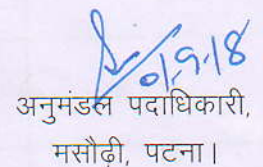 01-9-18
अनुमंडल पदाधिकारी,
मसौढ़ी, पटना।